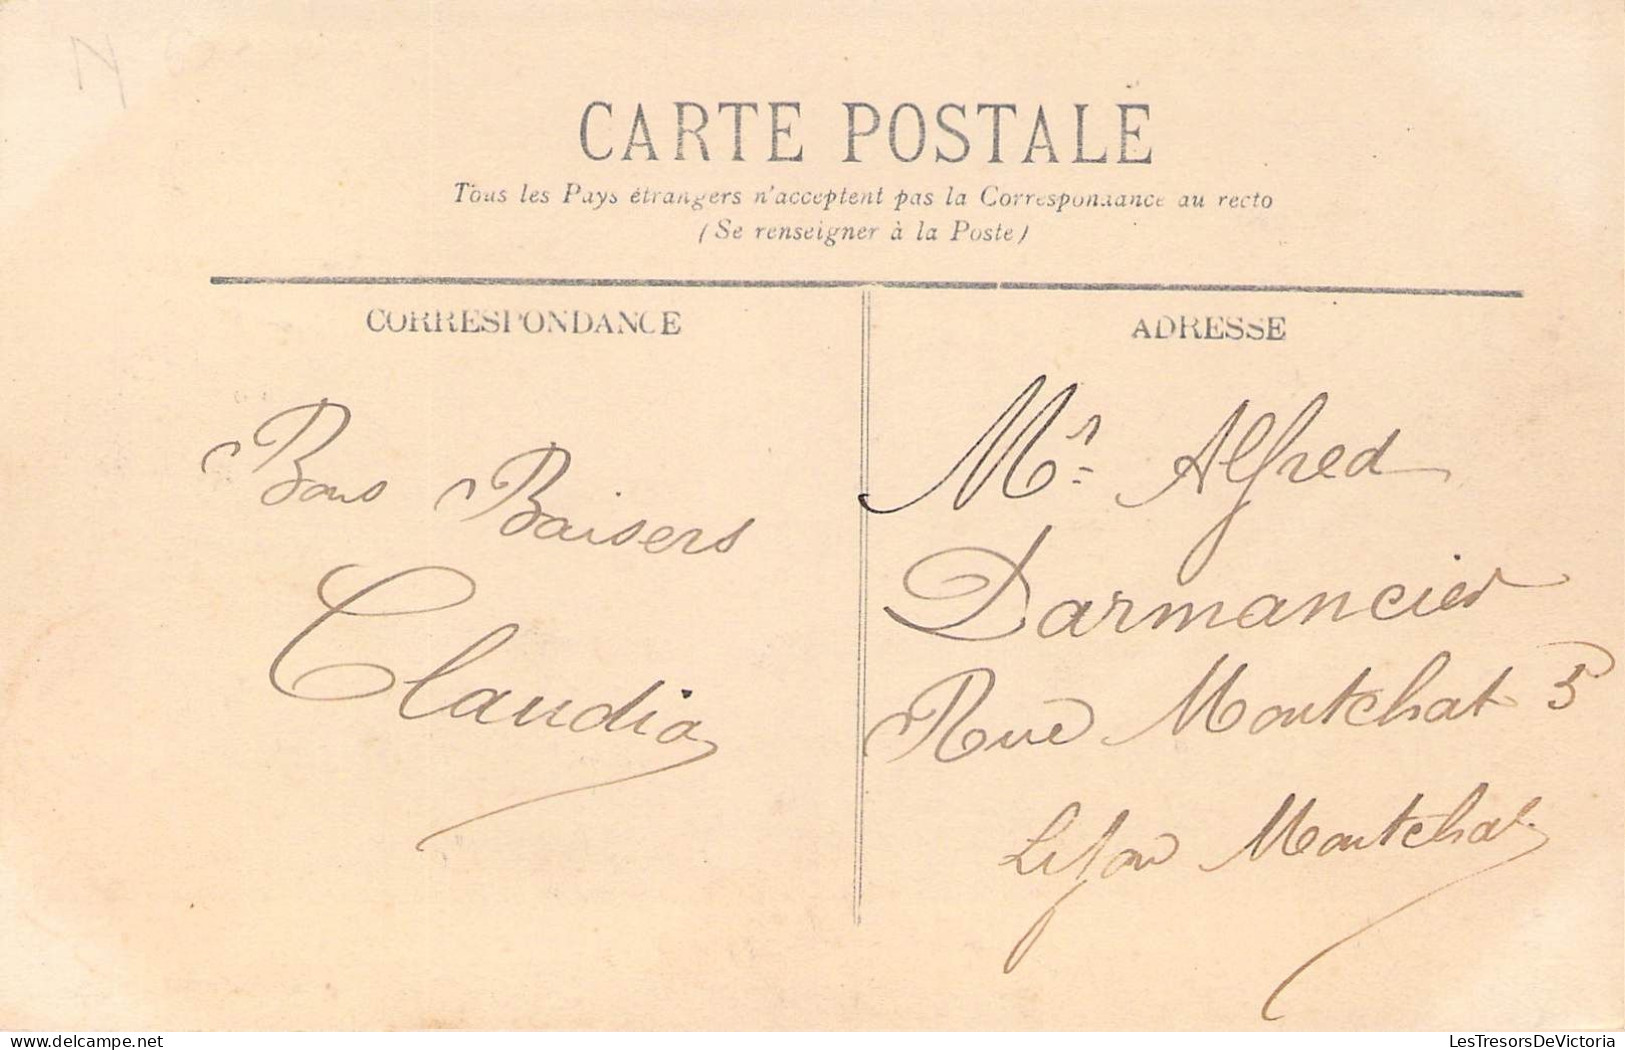 CARTE POSTALE
Tous les Pays étrangers n'acceptent pas la Correspondance au recto
(Se renseigner à la Poste)
CORRESPONDANCE
Bons Baisers
Claudia
ADRESSE
Mr Alfred
Darmancier
Rue Montchat 5
Lyon Montchat
delcampe.net
LesTresorsDeVictoria